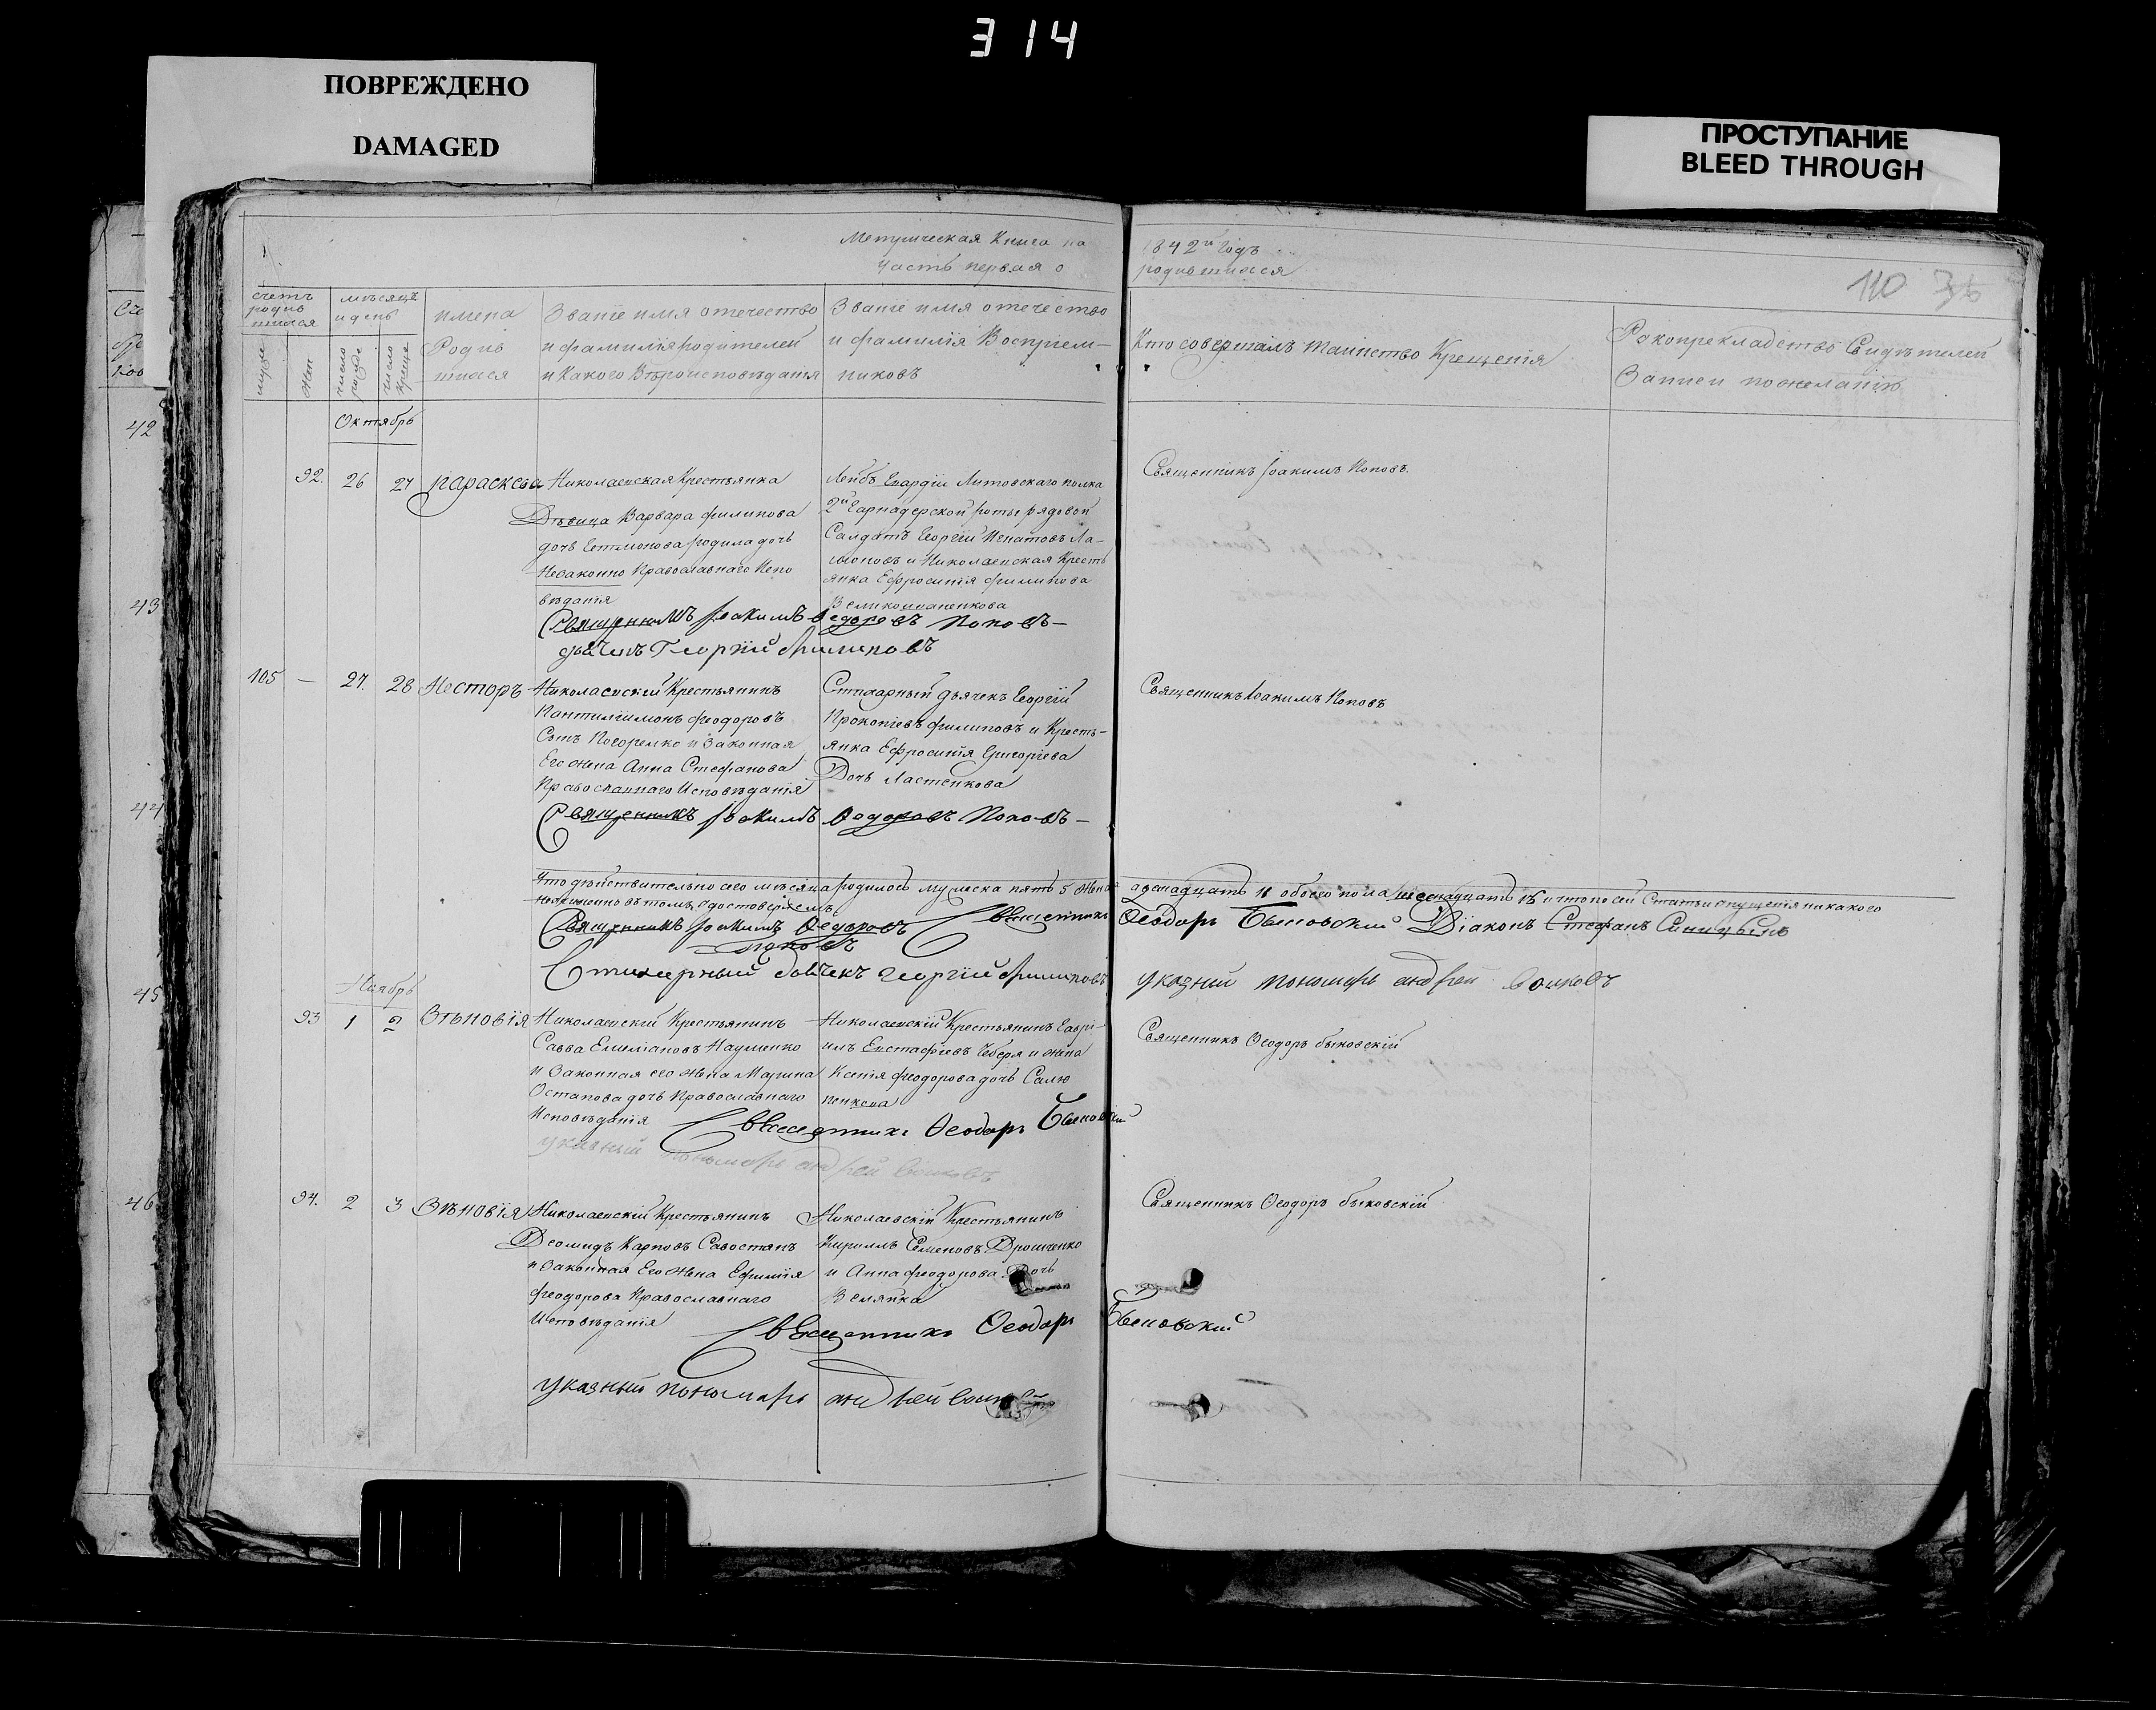 314
ПОВРЕЖДЕНО
DAMAGED
ПРОСТУПАНИЕ
BLEED THROUGH
Метрическая Книга на 1842й Годъ
Часть первая о родившихся
110 36
счетъ родив шихся
мѣсяцъ и день
имена Родив шихся
Званіе имя отечество и фамилія родителей и Какого Вѣроисповѣданія
Званіе имя отечество и фамилія Восприем- никовъ
Кто совершалъ таинство Крещенія
Рокоприкладство Свидѣтелей Записи по желанію
муже
жен
число рожде
число креще
42
43
44
45
46
Октябрь
92. 26 27 Параскева
Николаевская Крестьянка
Дѣвица Варвара филипова
дочь родила дочь
Незаконно Православнаго Испо
вѣданія
Лейбъ Гвардіи Литовскаго полка
2й Гарнадерской роты рядовой
Салдатъ Георгій Игнатовъ Ла-
и Николаевская Кресть
янка Ефросинія филипова
Священникъ Іоакимъ Попова.
Священникъ Іоакимъ Ѳедоровъ Поповъ
дьячекъ Георгій Филиповъ
105 — 27. 28 Несторъ
Николаевскій Крестьянинъ
Пантилгимонъ феодоровъ
Сынъ Погорелко и Законная
Его жена Анна Стефанова
Православнаго Исповѣданія
Стихарный дьячекъ Георгій
Прокопіевъ филиповъ и Кресть-
янка Ефросинія Григоріева
Дочь Ластенкова
Священникъ Іоакимъ Поповъ
Священникъ Іоакимъ Ѳедоровъ Поповъ
Что дѣйствительно сего мѣсяца родилось мужеска пять 5 женска одинадцать 11 обоего пола шеснадцать 16 и что по сей Статьи опущенія никакого
въ томъ удостоверяемъ
Священникъ Іоакимъ Ѳедоровъ Поповъ Священникъ Ѳеодоръ Быковский Діаконъ Стефанъ Синицынъ
Стихарный дьячекъ георгій Филиповъ указный пономарь андрей волковъ
Ноябрь
93 1 2 Зѣновія
Николаевскій Крестьянинъ
Савва Емеліановъ Науменко
и Законная его жена Марина
Остапова дочь Православнаго
Исповѣданія
Николаевскій Крестьянинъ Гаврі-
илъ Евстафіевъ Чебера и жена
Ксенія феодорова дочь
Священникъ Ѳеодоръ быковскій
Священникъ Ѳеодоръ Быковскій
указный пономарь андрей волковъ
94. 2 3 Зѣновія
Николаевскій Крестьянинъ
Деомидъ Карповъ Савостянъ
и Законная Его жена Ефимія
феодорова Православнаго
Исповѣданія
Николаевскій Крестьянинъ
Кириллъ Семеновъ
и Анна феодорова Дочь
Священникъ Ѳеодоръ быковскій
Священникъ Ѳеодоръ Быковский
указный пономарь андрей